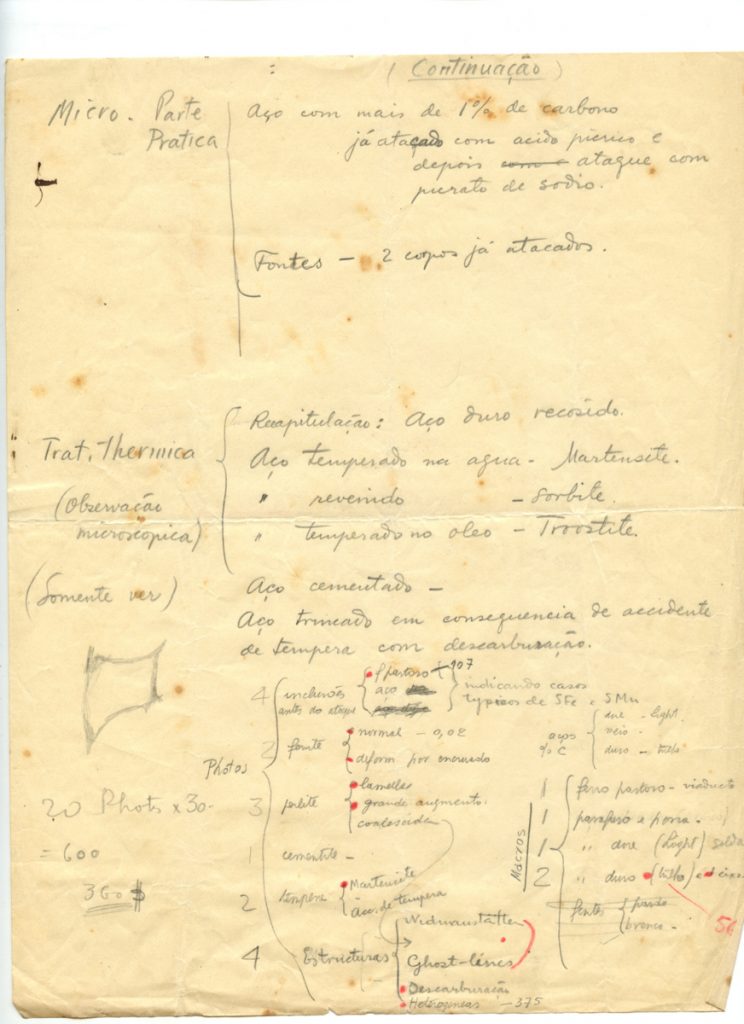 (Continuação)
Micro. Parte
Pratica
Aço com mais de 1% de carbono
já atacado com acido picrico e
depois ataque com
picrato de sodio.
Fontes — 2 corpos já atacados.
Trat. Thermica
(Observação
microscopica)
Recapitulação: Aço duro recosido.
Aço temperado na agua - Martensite.
" revenido - Sorbite.
" temperado no oleo - Troostite.
(Somente ver)
Aço cementado —
Aço trincado em consequencia de accidente
de tempera com descarburação.
Photos
4 inclusões
antes do ataque
f pastoso 107
aço
indicando casos
typicos de SFe e SMn
2 ferrite
normal - 0,02
deform por encruado
3 perlite
lamellar
grande augmento.
coalescida
1 cementite -
2 tempera
Martensite
Acc. de tempera
4 Estructuras
Widmanstätten
Ghost-lines
Descarburação
Heterogeneas - 375
20 Phots x 30-
= 600
360 $
aços
% C
doce - light.
meio -
duro - trilho
Macros
1 ferro pastoso - viaducto
1 parafuso e porca
1 " doce (Light) solda
2 " duro (trilho) e eixo
fontes
parda
branco -
56